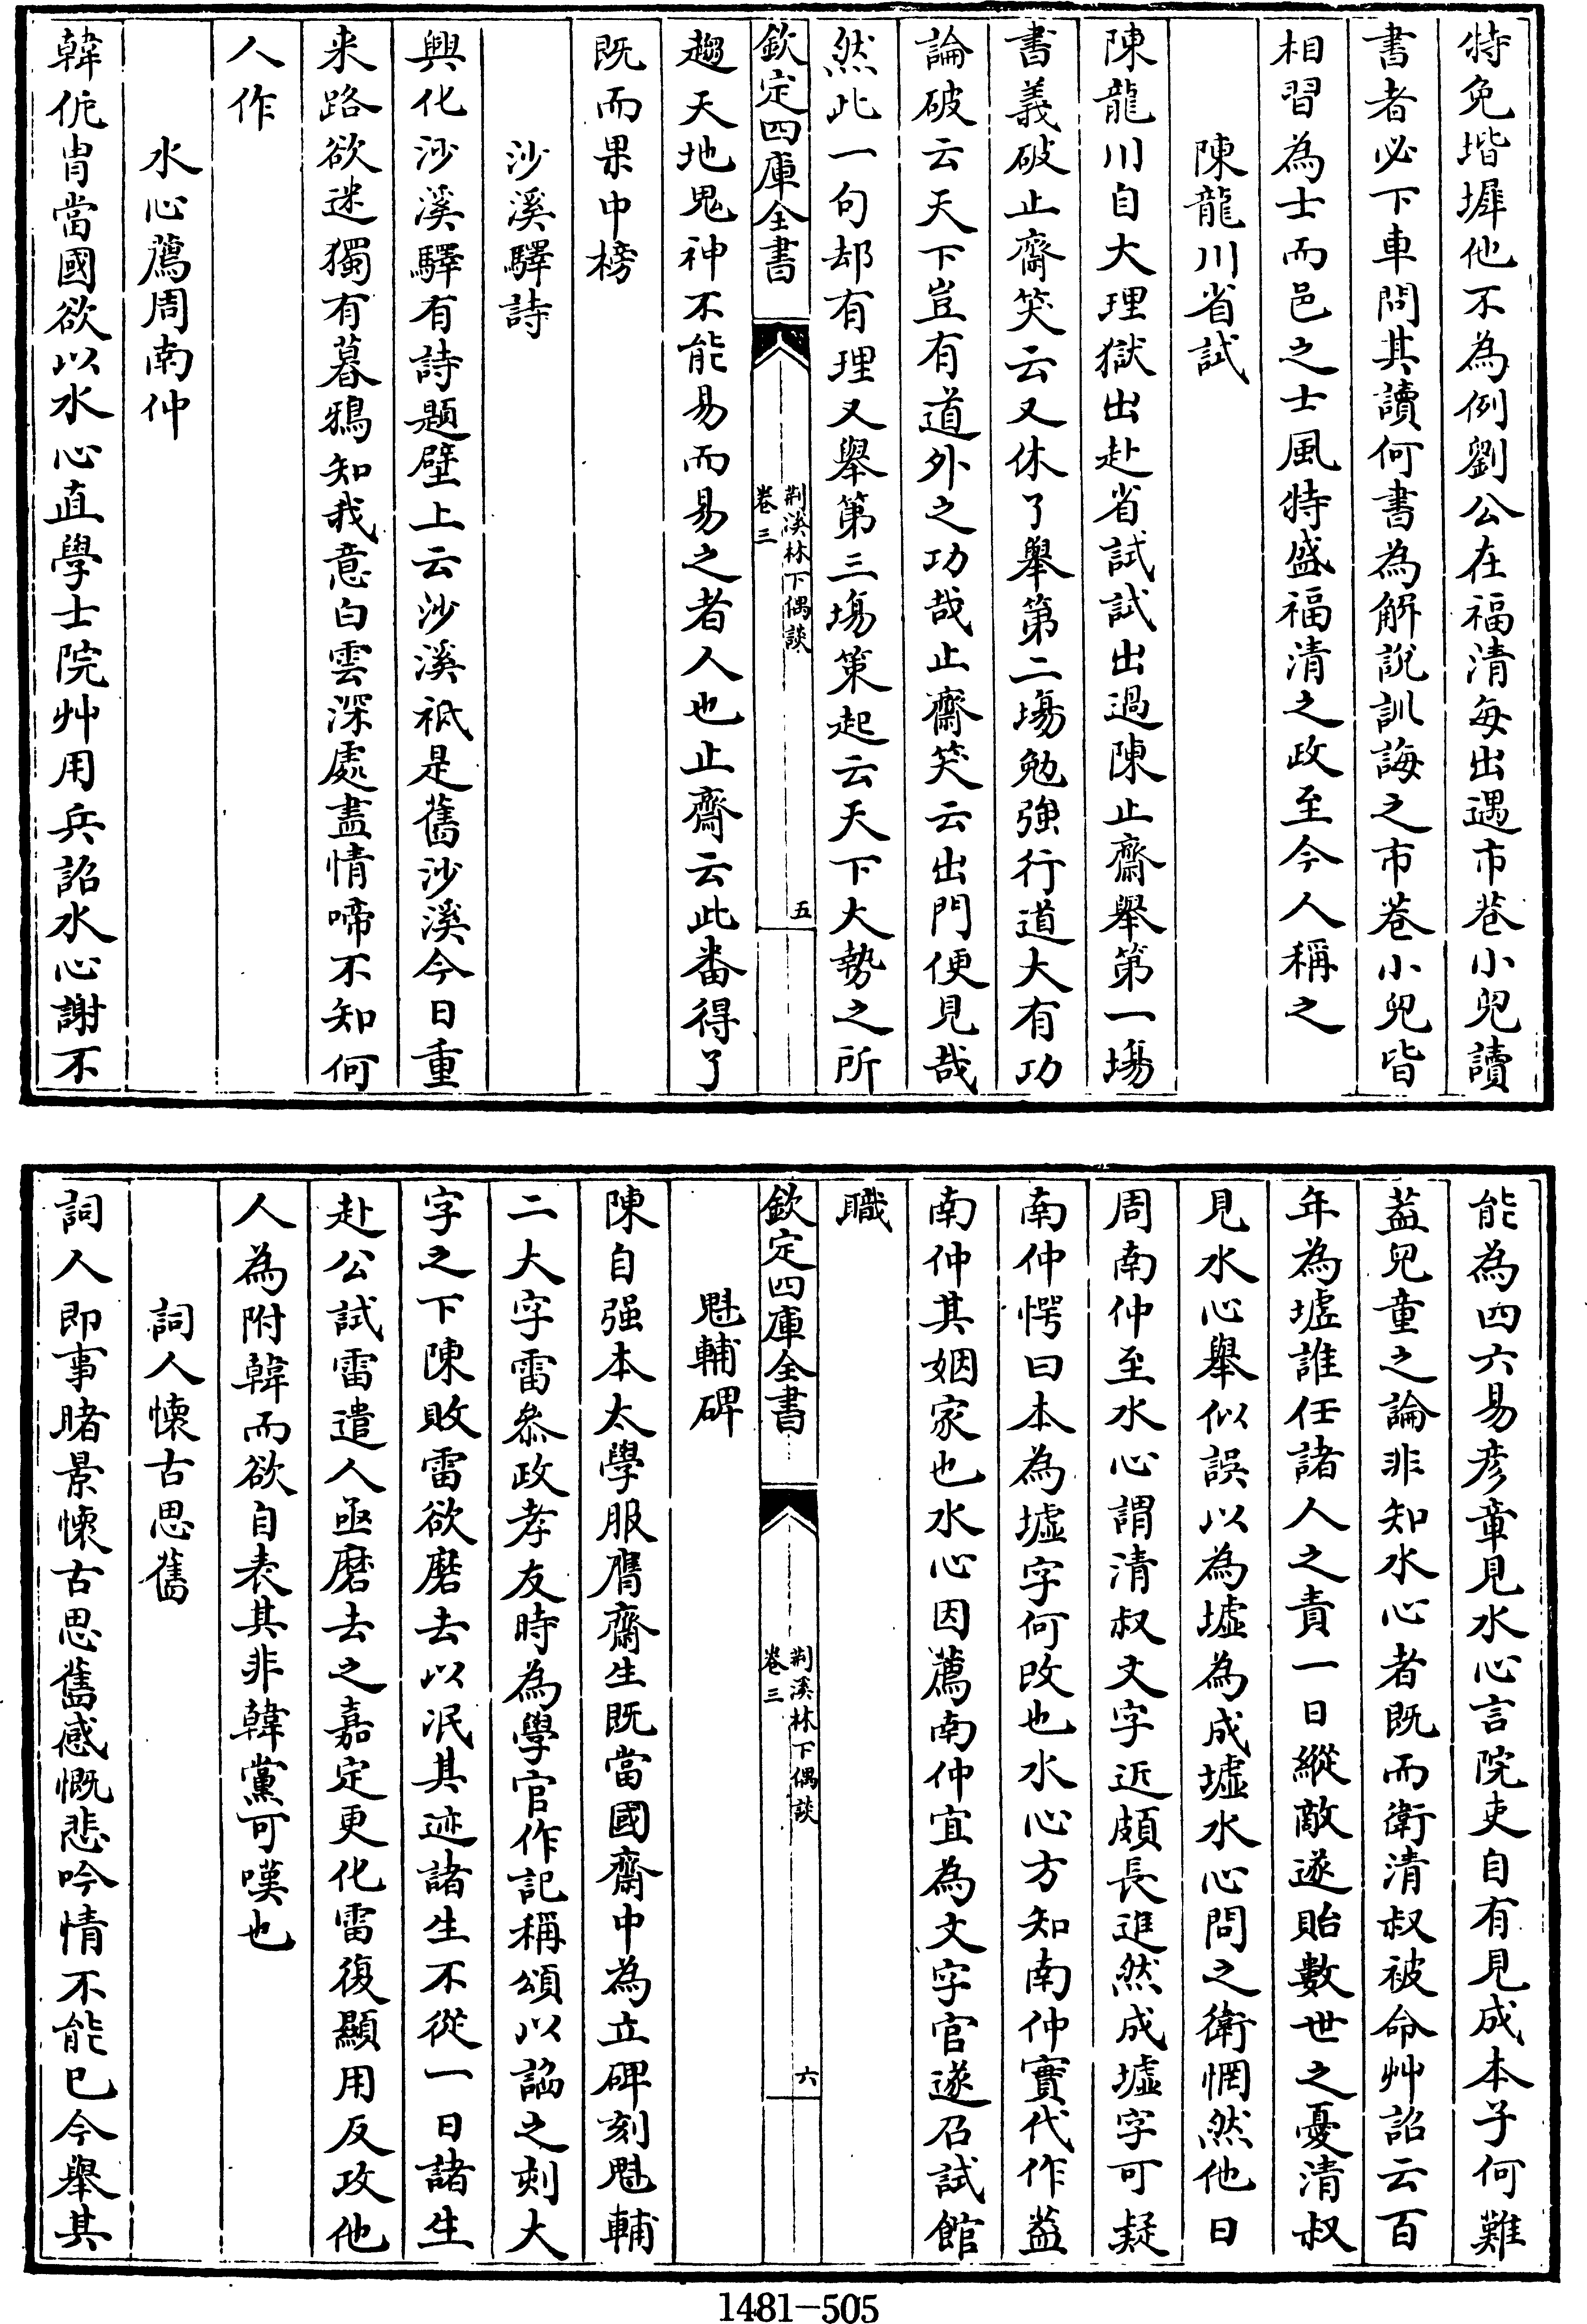 特免堦墀他不為例劉公在福清每出遇市巷小兒讀
書者必下車問其讀何書為解說訓誨之市巷小兒皆
相習為士而邑之士風特盛福清之政至今人稱之
陳龍川省試
陳龍川自大理獄出赴省試試出過陳止齋舉第一場
書義破止齋笑云又休了舉第二場勉強行道大有功
論破云天下豈有道外之功哉止齋笑云出門便見哉
然此一句却有理又舉第三場策起云天下大勢之所
欽定四庫全書
荆溪林下偶談
卷三
五
趨天地鬼神不能易而易之者人也止齋云此番得了
既而果中榜
沙溪驛詩
興化沙溪驛有詩題壁上云沙溪祗是舊沙溪今日重
来路欲迷獨有暮鴉知我意白雲深處盡情啼不知何
人作
水心薦周南仲
韓侂胄當國欲以水心直學士院艸用兵詔水心謝不
能為四六易彦章見水心言院吏自有見成本子何難
葢兒童之論非知水心者既而衛清叔被命艸詔云百
年為墟誰任諸人之責一日縱敵遂貽數世之憂清叔
見水心舉似誤以為墟為成墟水心問之衛惘然他日
周南仲至水心謂清叔文字近頗長進然成墟字可疑
南仲愕曰本為墟字何改也水心方知南仲實代作葢
南仲其姻家也水心因薦南仲宜為文字官遂召試館
職
欽定四庫全書
荆溪林下偶談
卷三
六
魁輔碑
陳自强本太學服膺齋生既當國齋中為立碑刻魁輔
二大字雷叅政孝友時為學官作記稱頌以諂之刻大
字之下陳敗雷欲磨去以泯其迹諸生不從一日諸生
赴公試雷遣人亟磨去之嘉定更化雷復顯用反攻他
人為附韓而欲自表其非韓黨可嘆也
詞人懷古思舊
詞人即事睹景懷古思舊感慨悲吟情不能已今舉其
1481-505